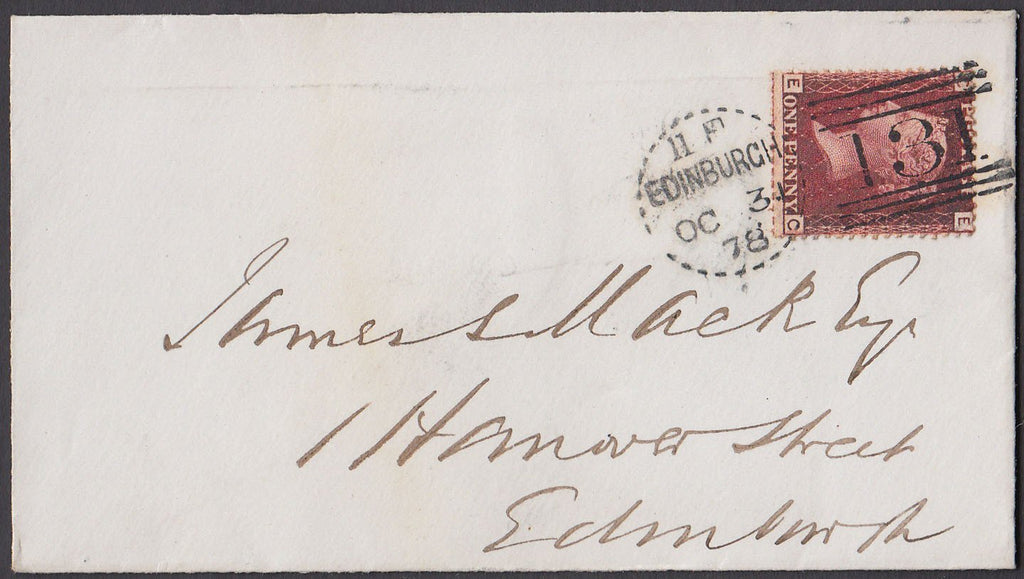 11 F
EDINBURGH
OC 31
78
131
E
E
E
C
ONE PENNY
James Mack Esqr
1 Hanover Street
Edinburgh